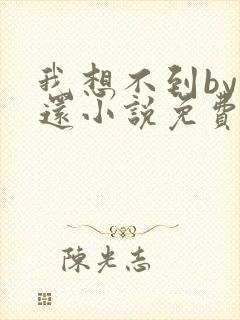 我想不到by
還小說免費
陳光志